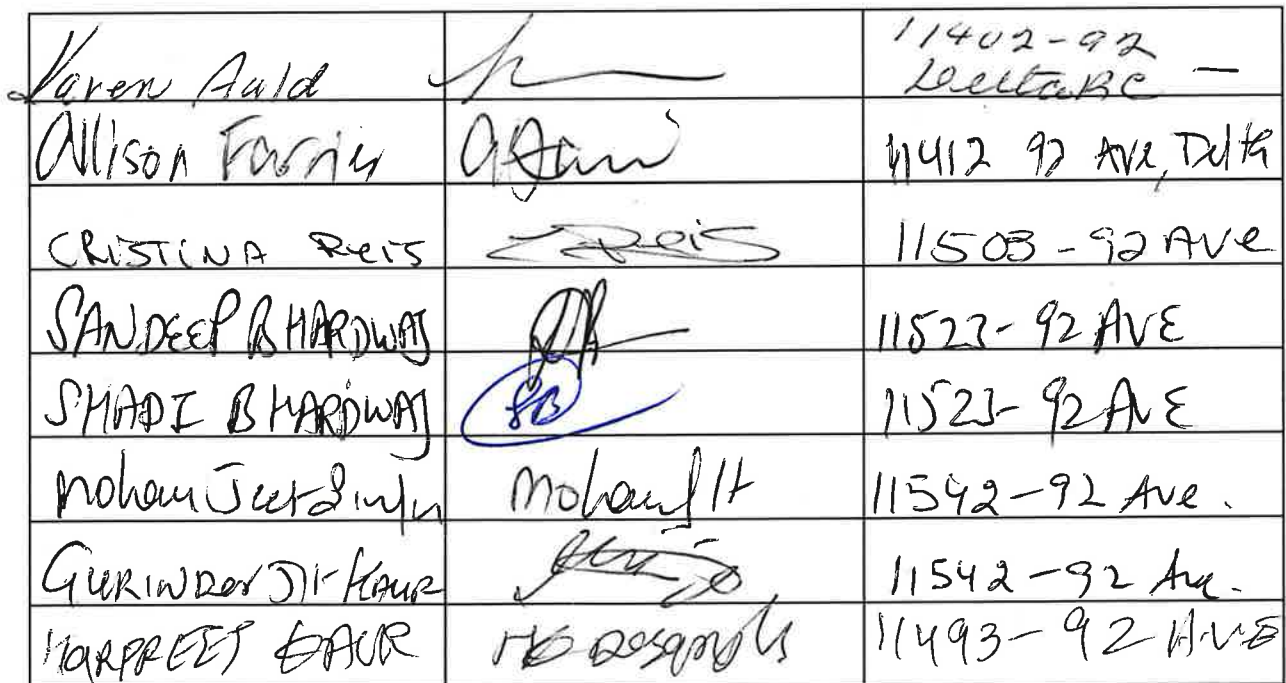 Karen Auld 11402-92
Delta BC —
Allison Farrier 11412 92 Ave, Delta
CRISTINA REIS CReis 11503-92 AVe
SANDEEP BHARDWAJ 11523-92 AVE
SHADI BHARDWAJ SB 11523-92 AVE
Mohan Jeet Singh 11542-92 Ave.
GURINDER JIT KAUR 11542-92 Ave.
HARPREET KAUR 11493-92 AVE